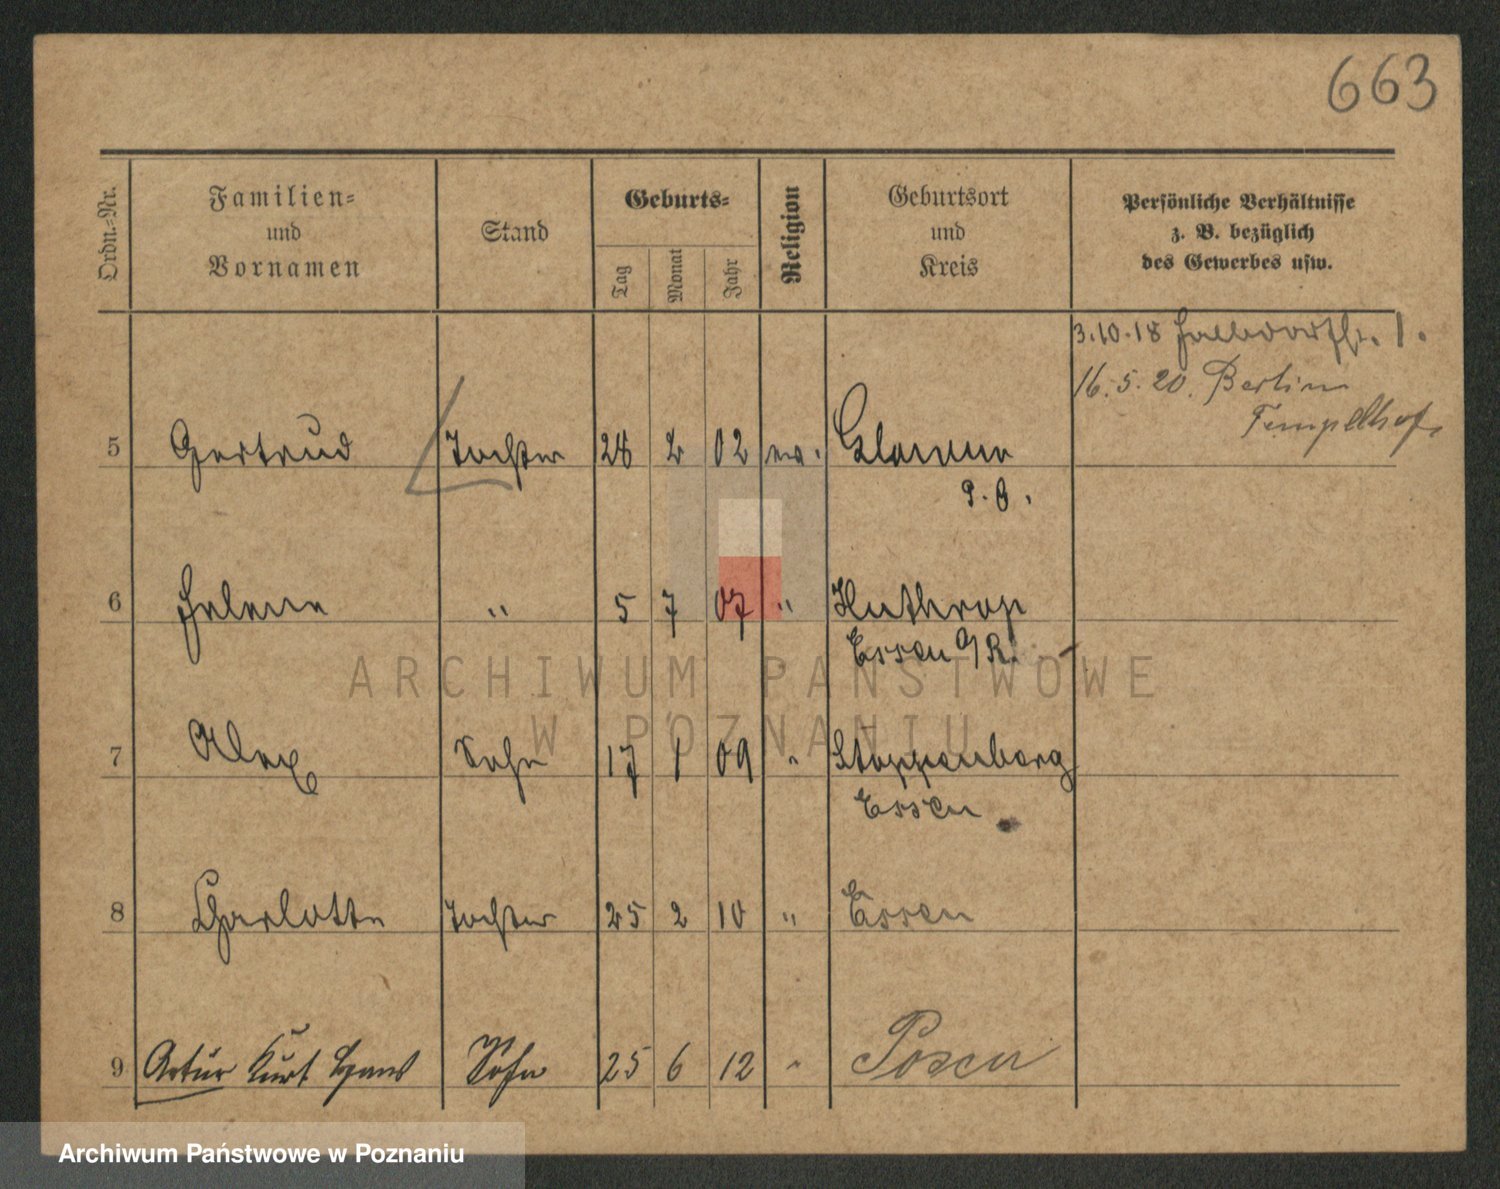 663
Ordn.-Nr.
Familien-
und
Vornamen
Stand
Geburts-
Tag
Monat
Jahr
Religion
Geburtsort
und
Kreis
Persönliche Verhältnisse
z. B. bezüglich
des Gewerbes usw.
3.10.18 1.
16.5.20. Berlin
Tempelhof
5 Gertrud Tochter 28 2 02 ev.
P. B.
6 Helene " 5 7 07 " Huthrop
Essen a/R.
7 Alex Sohn 17 1 09 " Stoppenberg
Essen
8 Charlotte Tochter 25 2 10 " Essen
9 Artur Kurt Hans Sohn 25 6 12 " Posen
ARCHIWUM PAŃSTWOWE
W POZNANIU
Archiwum Państwowe w Poznaniu